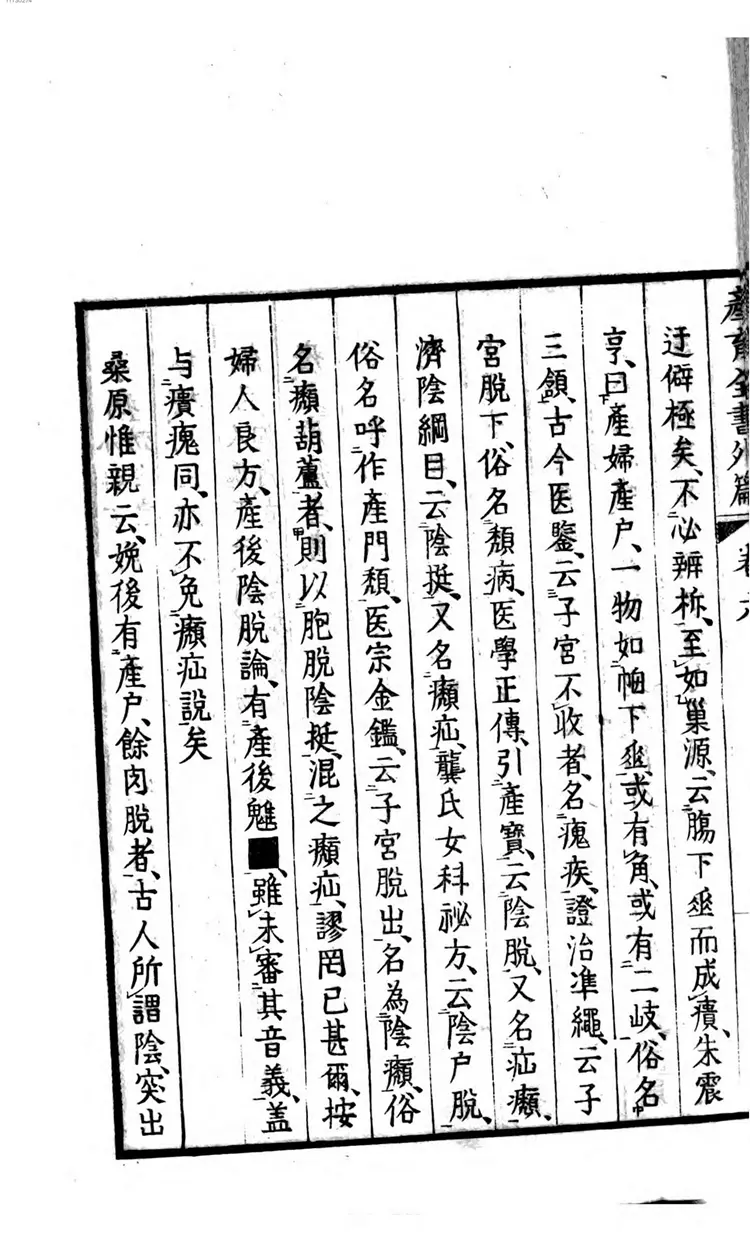 產育全書外篇 卷六
迂僻極矣、不必辨柝、至如巢源、云膓下垂而成㿉、朱震
亨、曰產婦產户、一物如帕下垂、或有角、或有二岐、俗名
三領、古今医鑒、云子宮不收者、名瘣疾、證治準繩、云子
宮脱下、俗名頹病、医學正傳、引產寶、云陰脱、又名疝癩、
濟陰綱目、云陰挺、又名癩疝、龔氏女科祕方、云陰户脱、
俗名呼作產門頹、医宗金鑑、云子宮脱出、名為陰癩、俗
名癩葫蘆者、則以胞脱陰挺、混之癩疝、謬罔已甚爾、按
婦人良方、產後陰脱論、有產後魋■、雖未審其音義、盖
与㿉瘣同、亦不免癩疝説矣
桑原惟親云、娩後有產户、餘肉脱者、古人所謂陰突出